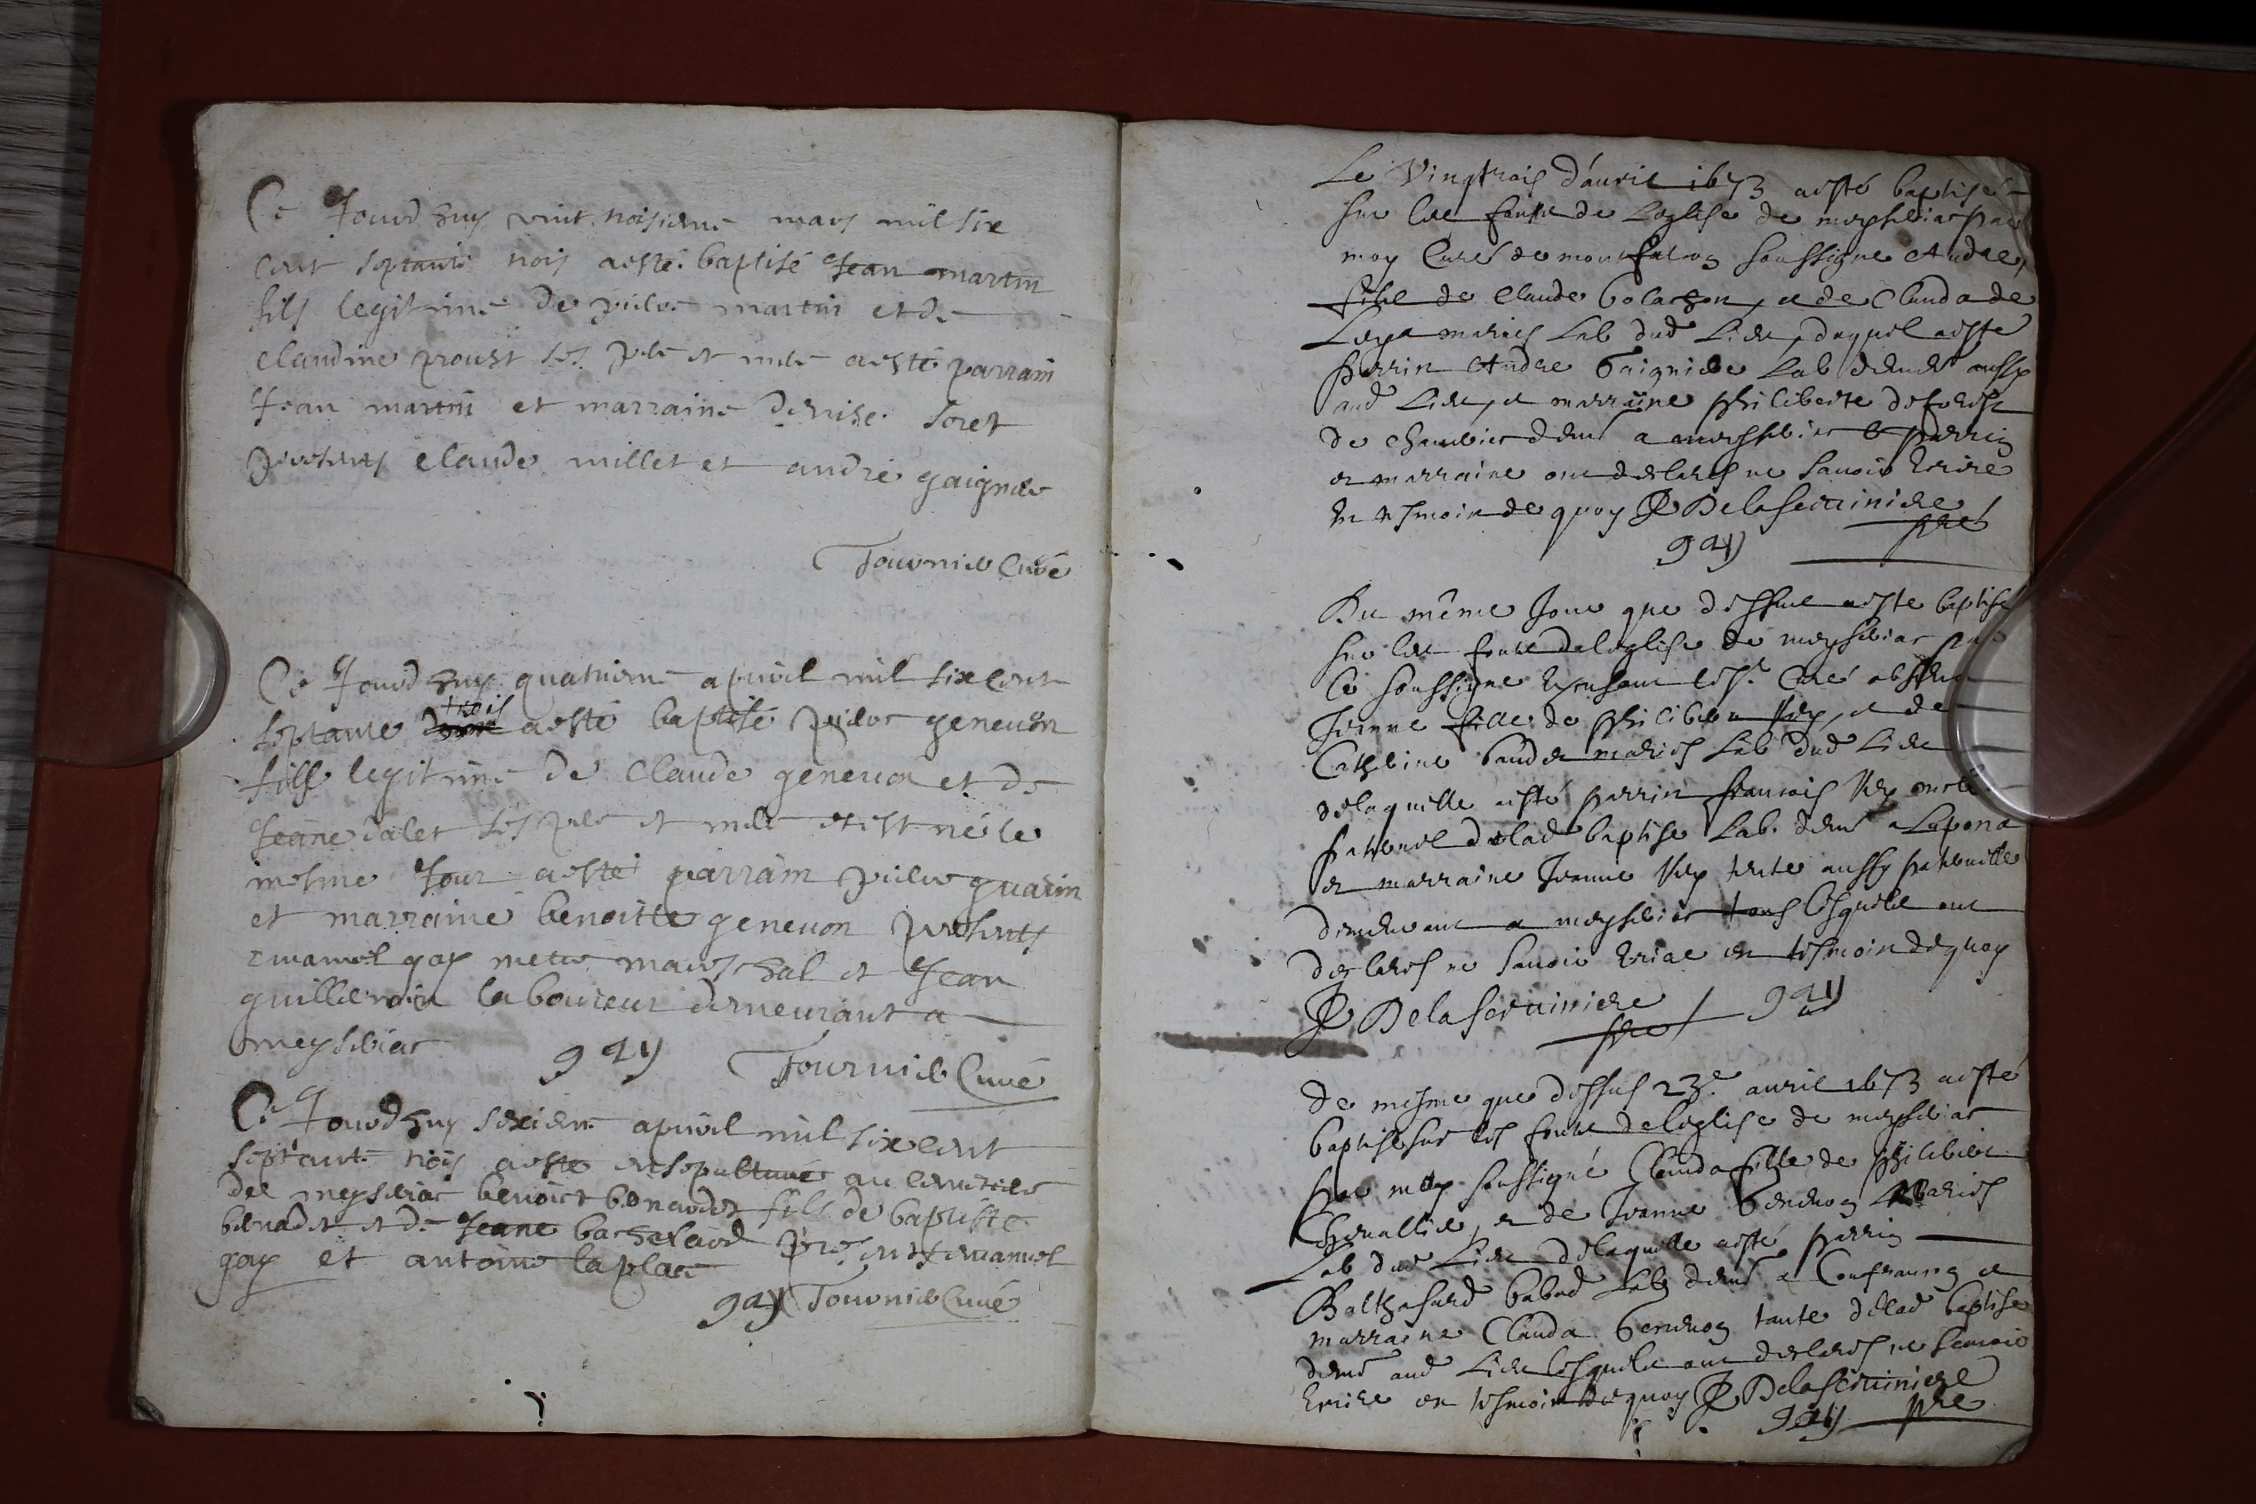 Ce Jourdhuy vint troisieme mars mil six
cent septante trois a esté baptisé Jean martin
fils legitime de pierre martin et de
claudine proust ses pere et mere a esté parrain
Jean martin et marraine denise soret
presents claude millet et andré gaignere
Tournier Curé
Ce Jourdhuy quatrieme apvril mil six cent
trois
septante a esté baptisé pierre geneuon
fils legitime de Claude geneuon et de
Jeane salet ses pere et mere et est né le
mesme Jour a esté parrain pierre guarin
et marraine benoitte geneuon presents
emanuel gay metre mareschal et Jean
guillermin laboureur demeurant a
meyseriac
Tournier Curé
Ce Jourdhuy sixieme apvril mil six cent
septante trois a esté ensepulturé au cimetiere
de meyseriac benoict bernadet fils de baptiste
bernadet et de Jeane bachelard presents emanuel
gay et antoine laplace
Tournier Curé
Le Vingtrois d'auril 1673 a esté baptisé
sur les fonts de Leglise de meyseriac par
moy Curé de montfalcon soussigné Andre,
fils de Claude bolachon, et de Clauda de
Laya mariés Lab dud Lieu, duquel a esté
parrin Andre Gaigniere Lab demeur aussy
aud Lieu, et marraine philiberte deforest
de chambier demt a meysseriac parrin
et marraine ont desclarés ne sauoir Ecrire
En tesmoin de quoy Delaseruiniere
pre
Du même Jour que dessus a esté baptisé
sur les fonts de leglise de meyseriac par
le soussigné En absence Curé
Jeanne fille de philibert Rey, et de
Catherine baudet mariés Lab dud Lieu
de laquelle a esté parrin francois Rey oncle
paternel delad baptisé Lab. demt a Lapena
et marraine Jeanne Rey tente aussy paternelle
demeurant a meyseriac tous lesquels ont
desclarés ne sauoir Ecrire en tesmoin de quoy
Delaseruiniere
pre
de mesme que dessus 23e auril 1673 a esté
baptisé sur les fonts de leglise de meyseriac
par moy soussigné Clauda fille de philibert
Cheuallier, et de Jeanne Geneuon mariés
Lab dud Lieu de laquelle a esté parrin
Balthasard babad Lab demt a Confrancon et
marraine Clauda Geneuon tante delad baptisé
demt aud Lieu lesquels ont desclarés ne scauoir
Ecrire en tesmoin de quoy Delaseruiniere
pre